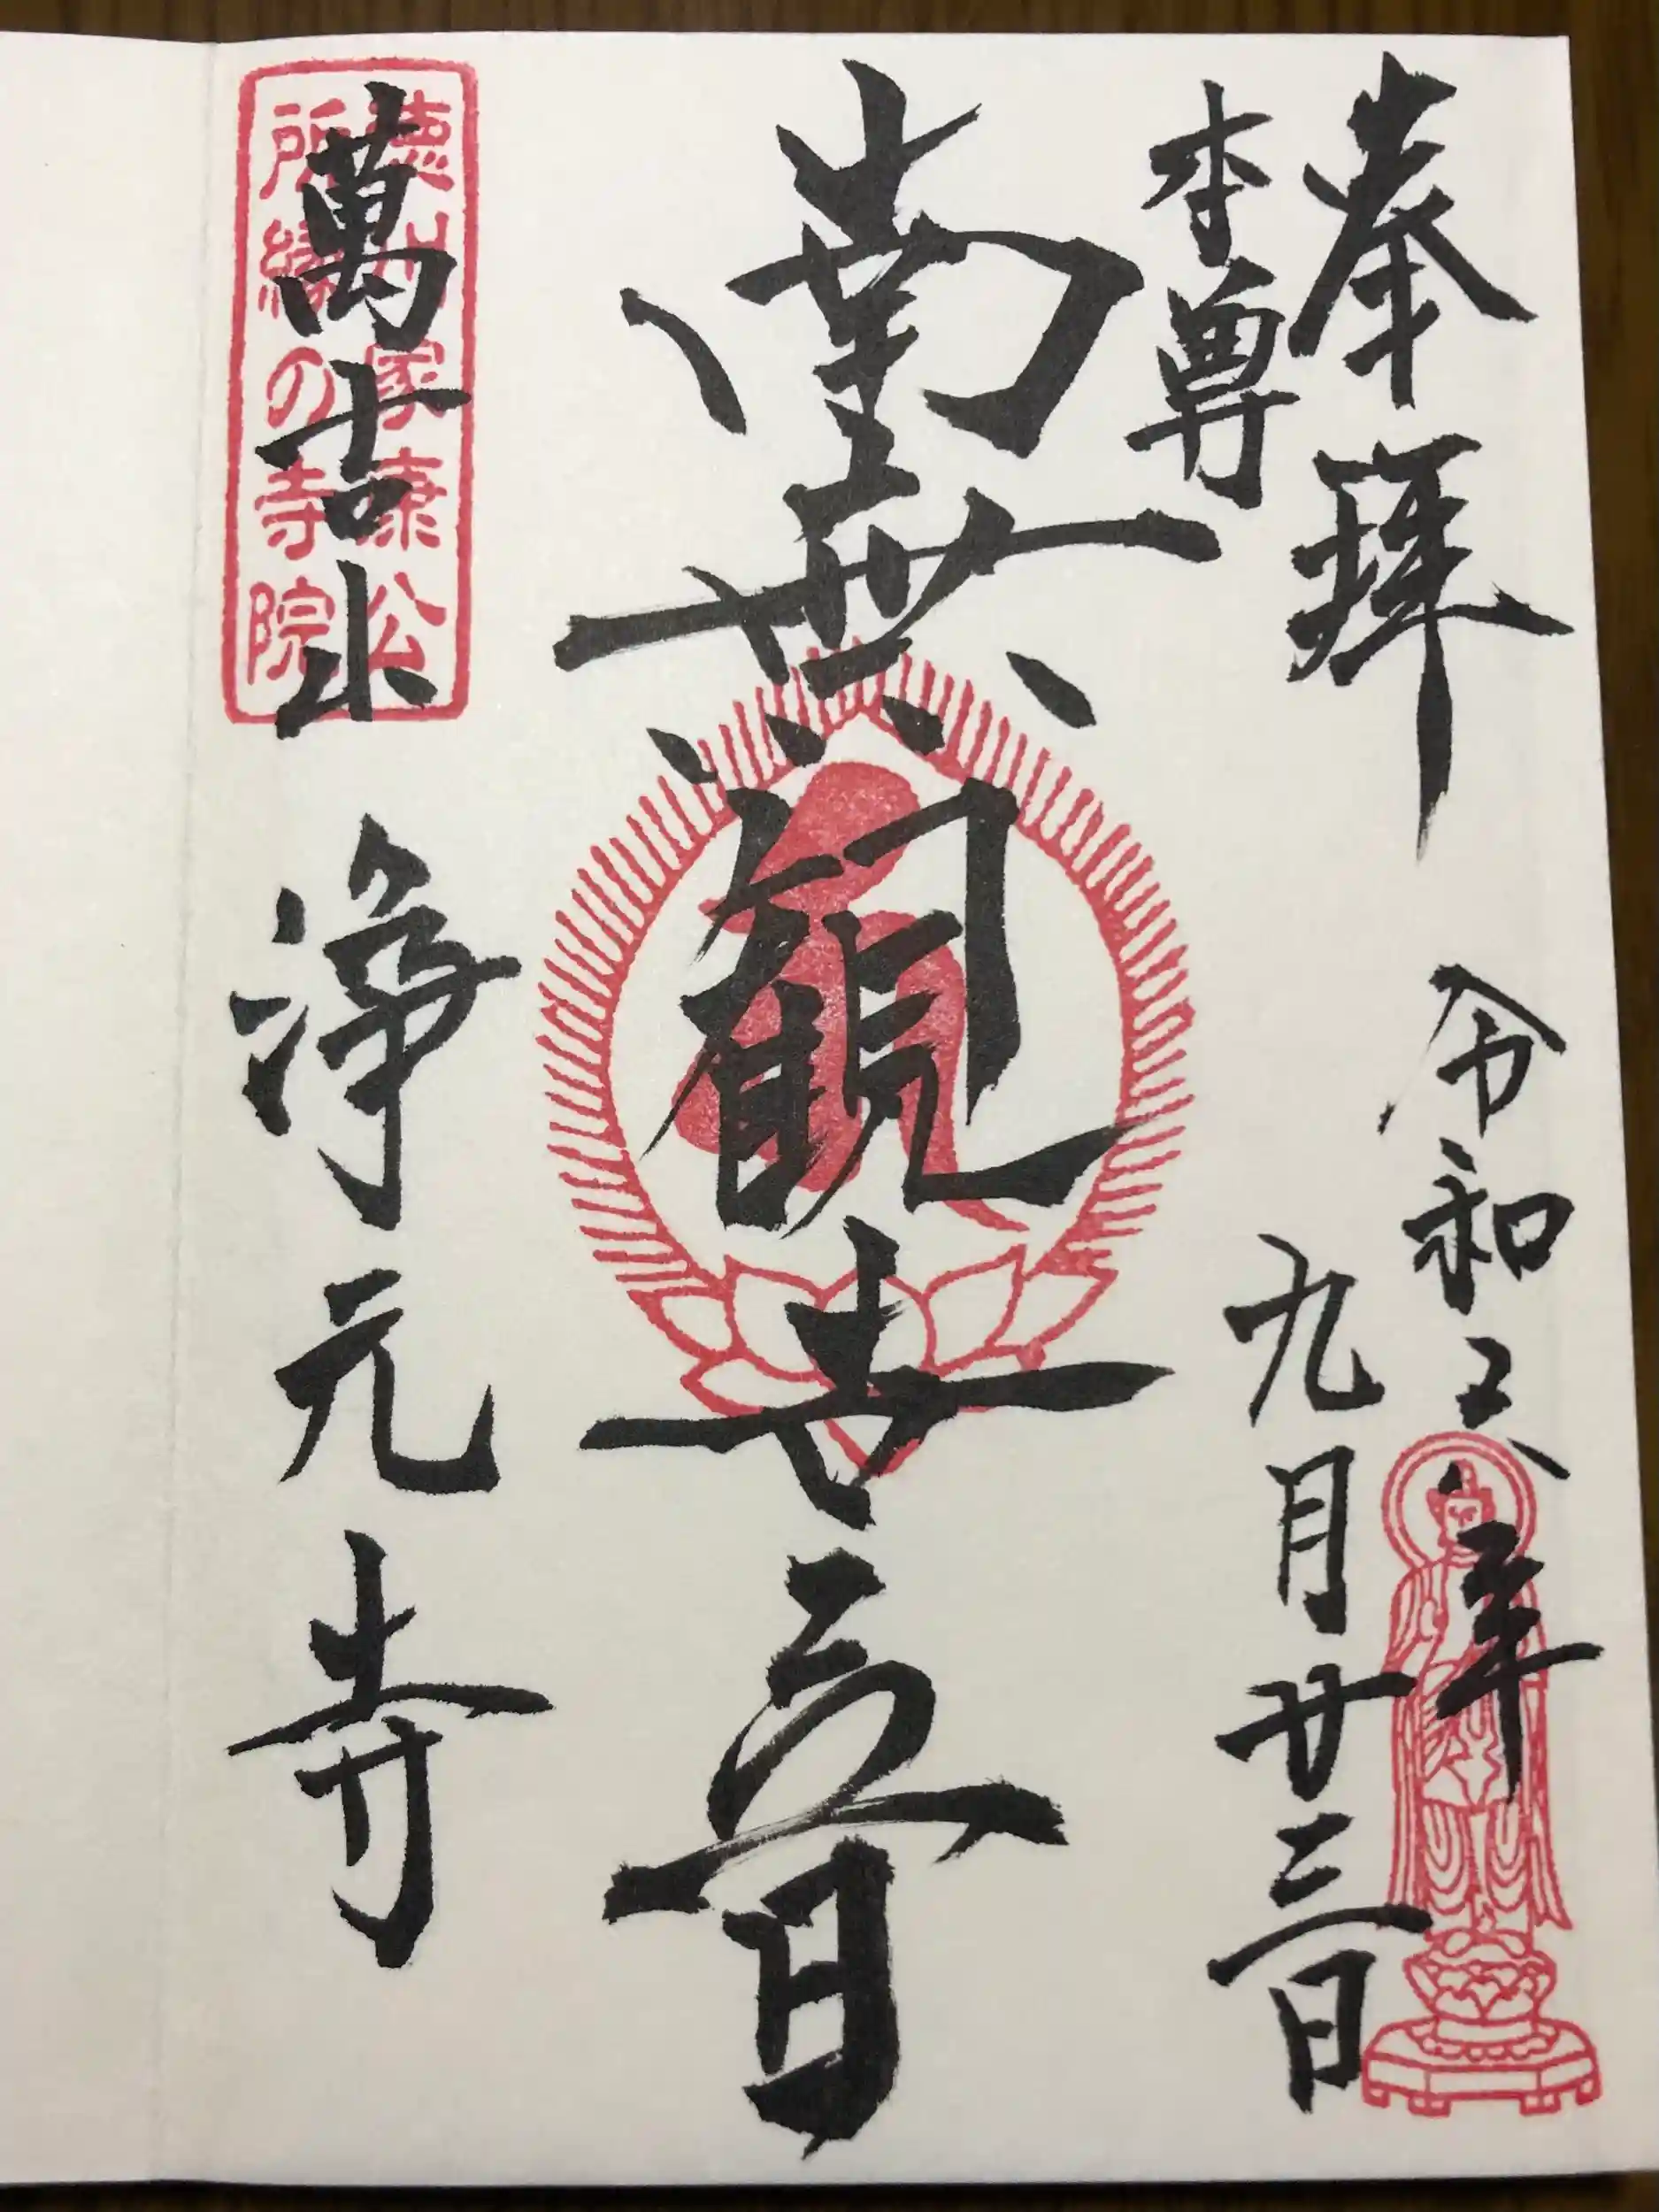 奉拝
本尊
令和六年
九月廿三日
南無観世音
萬吉山 浄元寺
徳川家康公
所縁の寺院